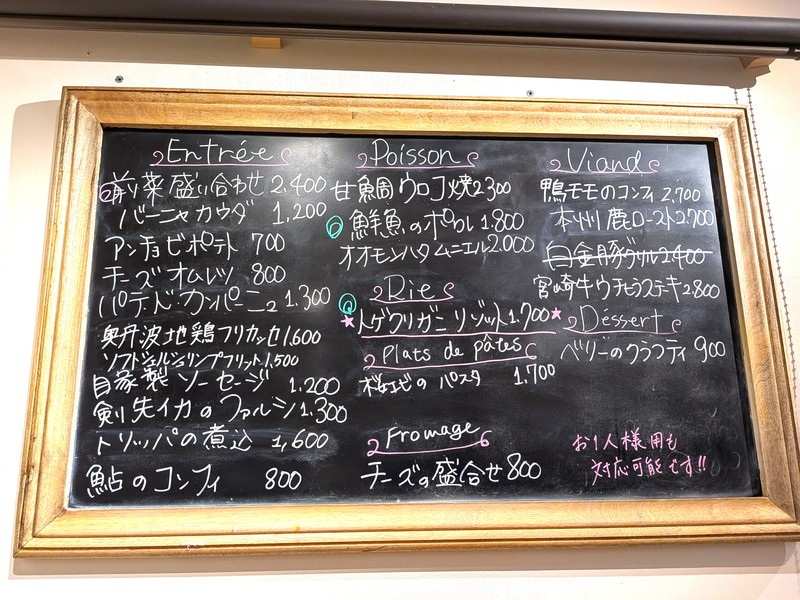 Entrée
前菜盛り合わせ 2,400
バーニャカウダ 1,200
アンチョビポテト 700
チーズオムレツ 800
パテ・ド・カンパーニュ 1,300
奥丹波地鶏フリカッセ 1,600
ソフトシェルシュリンプフリット 1,500
自家製ソーセージ 1,200
剣先イカのファルシ 1,300
トリッパの煮込 1,600
鮎のコンフィ 800
Poisson
甘鯛ウロコ焼 2300
鮮魚のポワレ 1,800
オオモンハタムニエル 2,000
Rie
★トゲクリガニリゾット 1,700★
Plats de pâtes
桜エビのパスタ 1,700
Fromage
チーズの盛合せ 800
Viand
鴨モモのコンフィ 2,700
本州鹿ロースト 2,700
白金豚グリル 2,400
宮崎牛ウチヒラステーキ 2,800
Déssert
ベリーのクラフティ 900
お1人様用も
対応可能です!!